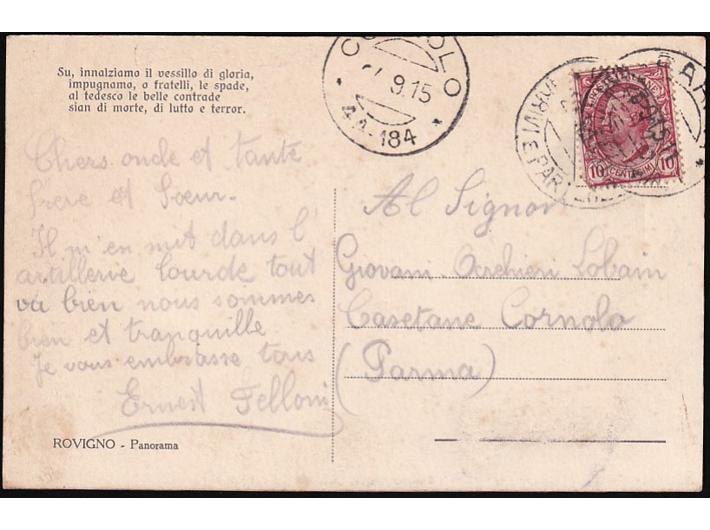 Su, innalziamo il vessillo di gloria,
impugnamo, o fratelli, le spade,
al tedesco le belle contrade
sian di morte, di lutto e terror.
9.15
(4A-184
10 CENTESIMI 10
Chers oncle et tante
frere et Sœur.
Il m'en mit dans l'
artillerie lourde tout
va bien nous sommes
bien et tranquille
Je vous embrasse tous
Ernest Felloni
Al Signor
Giovani Archieri Lobain
Casetane Cornolo
(Parma)
ROVIGNO - Panorama